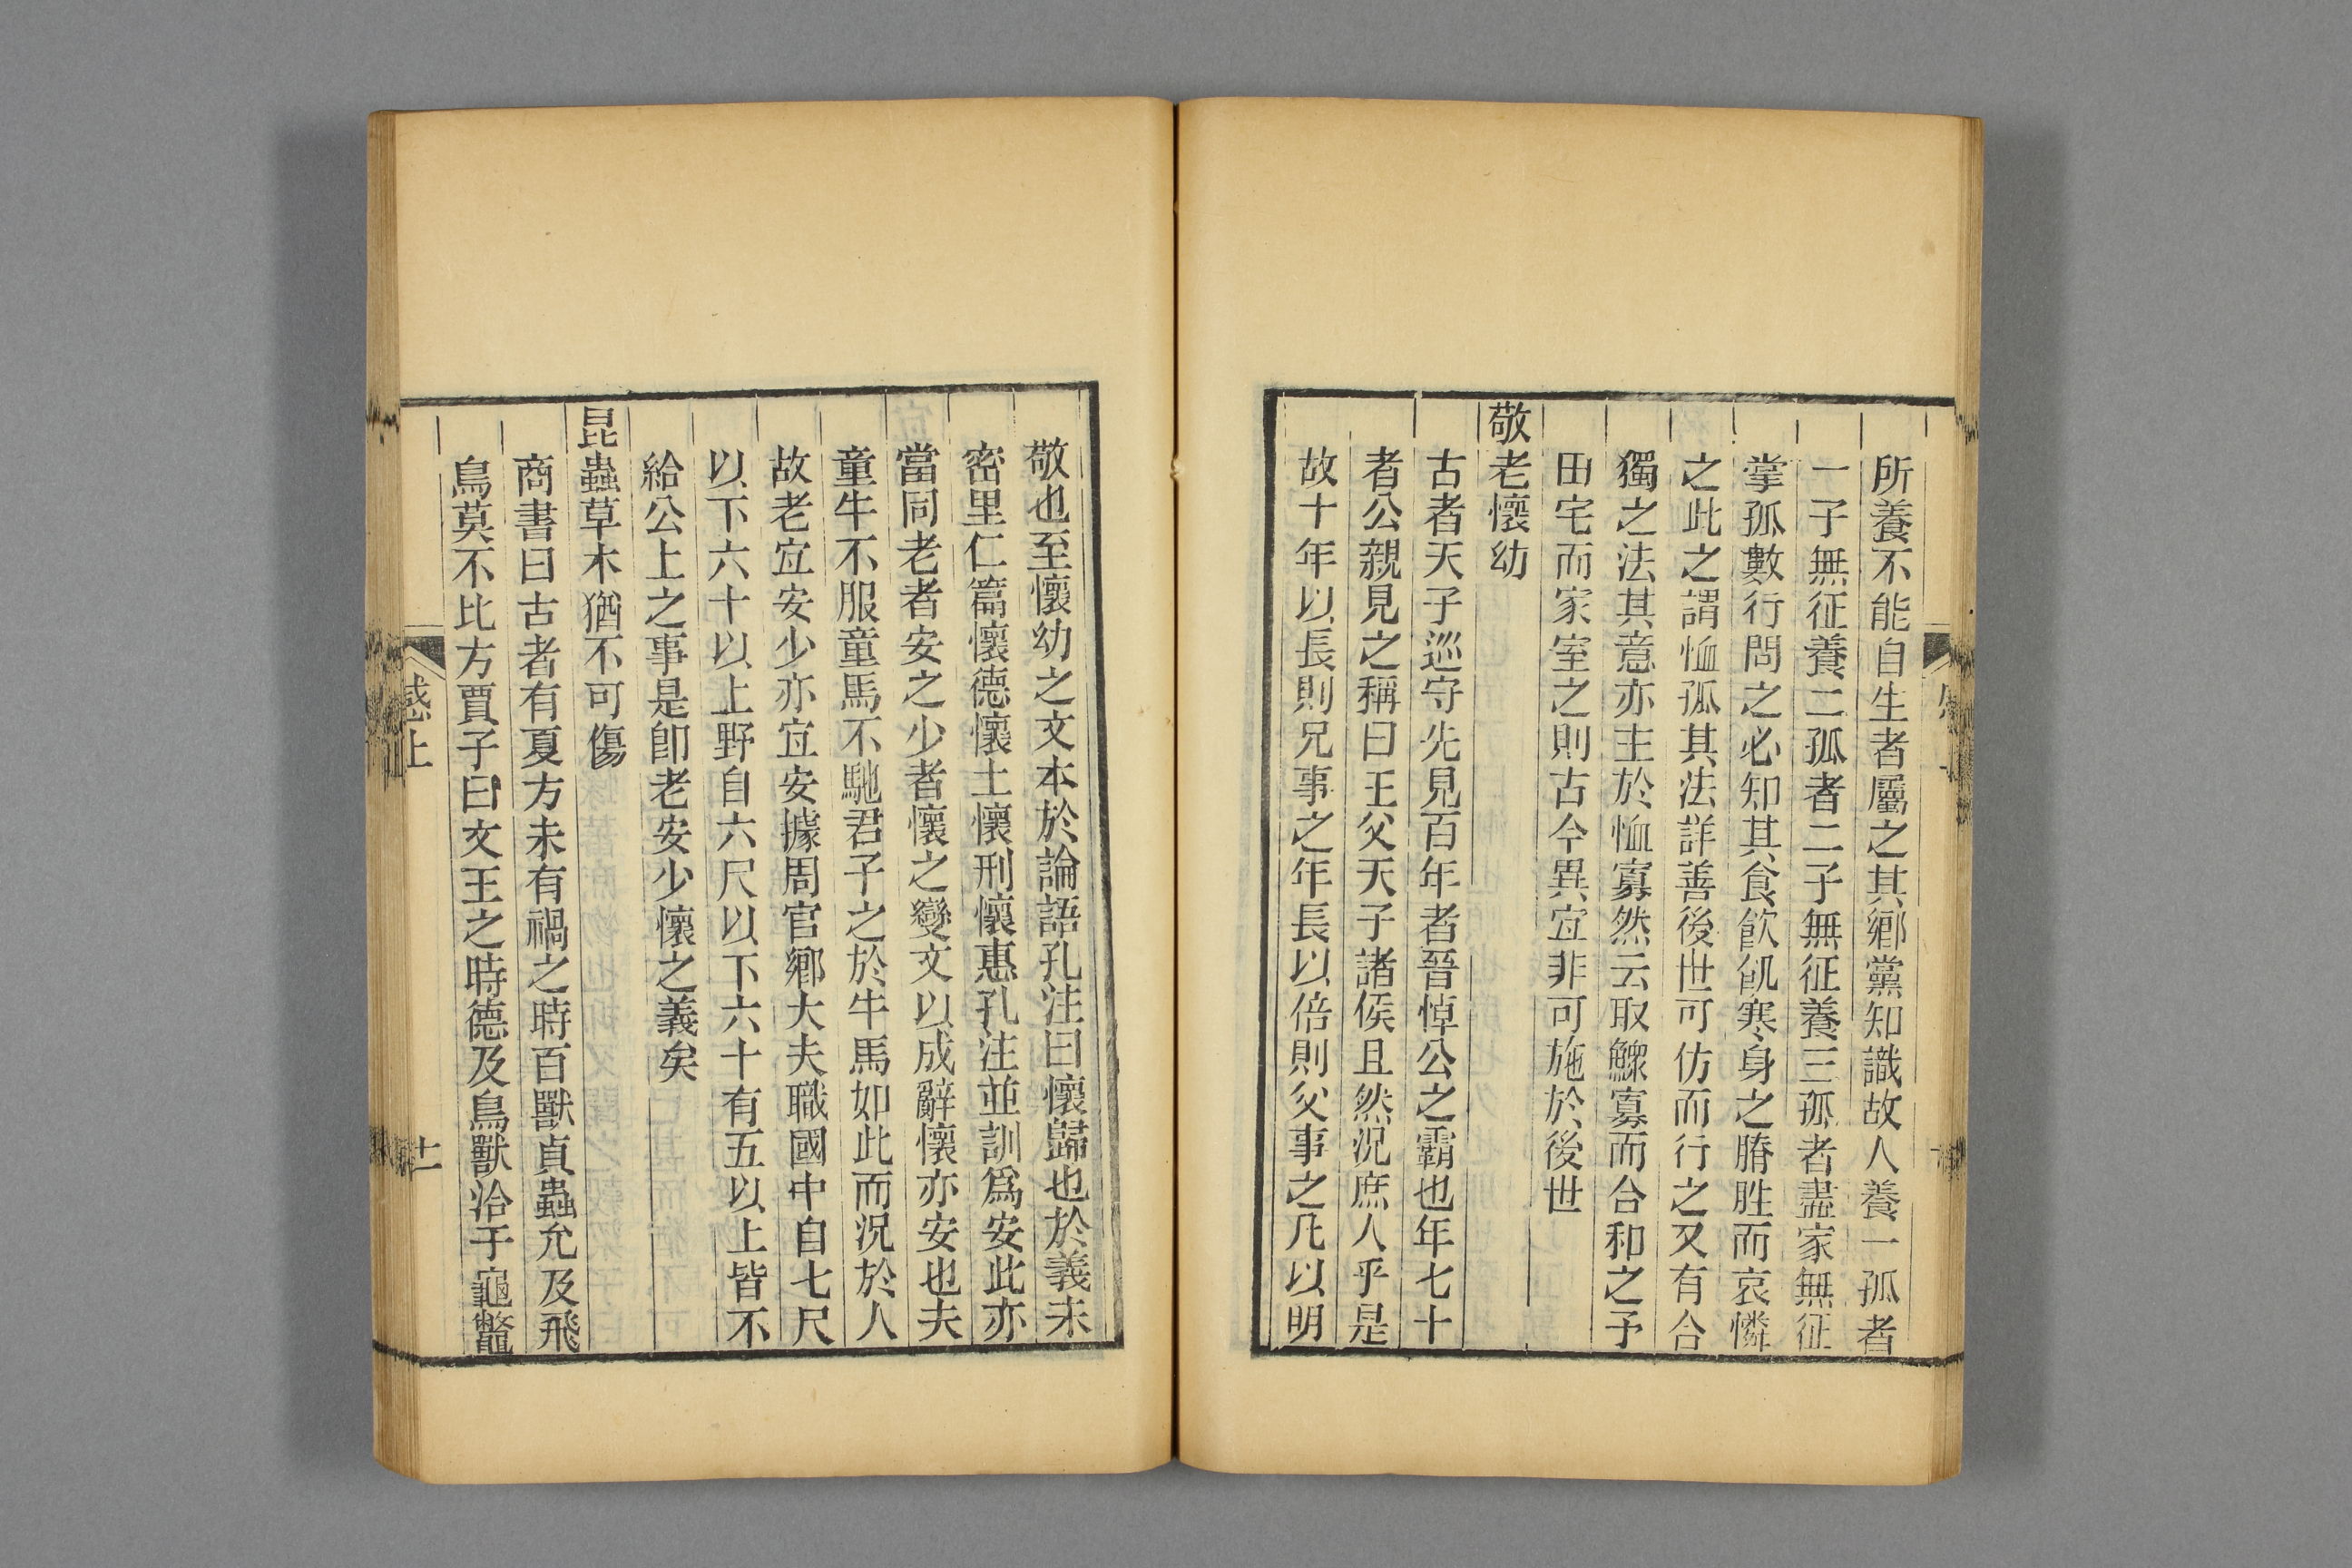 所養不能自生者屬之其鄉黨知識故人養一孤者
一子無征養二孤者二子無征養三孤者盡家無征
掌孤數行問之必知其食飮飢寒身之膌胜而哀憐
之此之謂恤孤其法詳善後世可仿而行之又有合
獨之法其意亦主於恤寡然云取鰥寡而合和之予
田宅而家室之則古今異宜非可施於後世
敬老懷幼
古者天子巡守先見百年者晉悼公之霸也年七十
者公親見之稱曰王父天子諸侯且然況庶人乎是
故十年以長則兄事之年長以倍則父事之凡以明
敬也至懷幼之文本於論語孔注曰懷歸也於義未
密里仁篇懷德懷土懷刑懷惠孔注並訓爲安此亦
當同老者安之少者懷之變文以成辭懷亦安也夫
童牛不服童馬不馳君子之於牛馬如此而況於人
故老宜安少亦宜安據周官鄉大夫職國中自七尺
以下六十以上野自六尺以下六十有五以上皆不
給公上之事是卽老安少懷之義矣
昆蟲草木猶不可傷
商書曰古者有夏方未有禍之時百獸貞蟲允及飛
鳥莫不比方賈子曰文王之時德及鳥獸洽于龜鼈
感上
十一